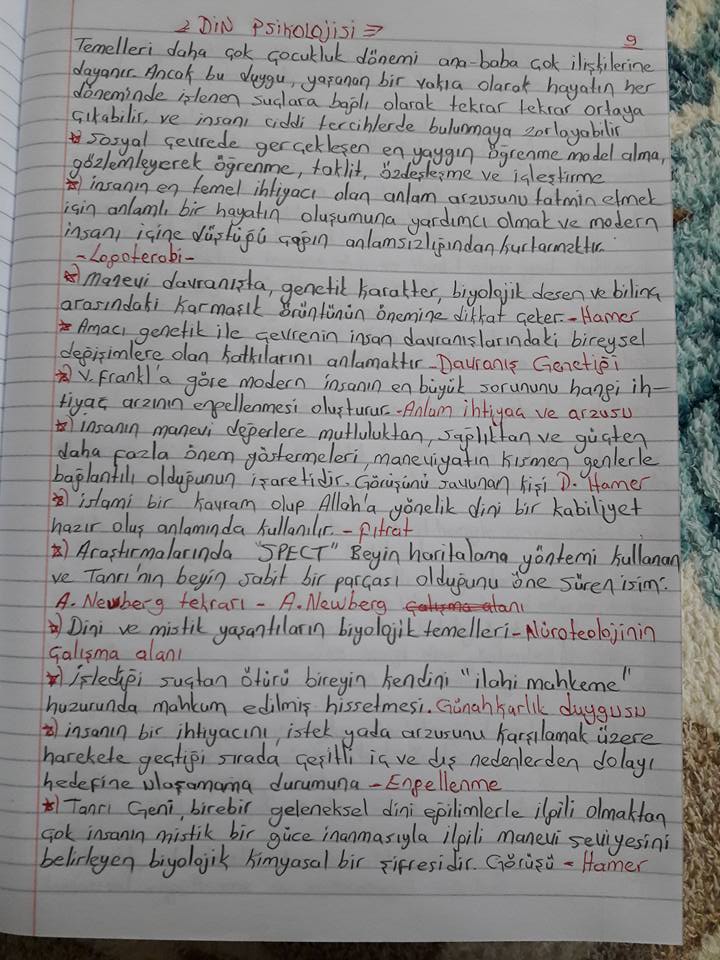 2 DİN PSİKOLOJİSİ ⇒
9
Temelleri daha çok çocukluk dönemi ana-baba çok ilişkilerine
dayanır. Ancak bu duygu, yaşanan bir vakıa olarak hayatın her
döneminde işlenen suçlara bağlı olarak tekrar tekrar ortaya
çıkabilir, ve insanı ciddi tercihlerde bulunmaya zorlayabilir
*) Sosyal çevrede gerçekleşen en yaygın öğrenme model alma,
gözlemleyerek öğrenme, taklit, özdeşleşme ve içleştirme
*) insanın en temel ihtiyacı olan anlam arzusunu tatmin etmek
için anlamlı bir hayatın oluşumuna yardımcı olmak ve modern
insanı içine düştüğü çağın anlamsızlığından kurtarmaktır.
-Logoterabi-
*) Manevi davranışta, genetik karakter, biyolojik desen ve bilinç
arasındaki karmaşık örüntünün önemine dikkat çeker. -Hamer
* Amacı genetik ile çevrenin insan davranışlarındaki bireysel
değişimlere olan katkılarını anlamaktır -Davranış Genetiği
*) V. Frankl'a göre modern insanın en büyük sorununu hangi ih-
tiyaç arzının engellenmesi oluşturur. -Anlam ihtiyacı ve arzusu
*) insanın manevi değerlere mutluluktan, sağlıktan ve güçten
daha fazla önem göstermeleri, maneviyatın kısmen genlerle
bağlantılı olduğunun işaretidir. Görüşünü savunan kişi D. Hamer
*) islami bir kavram olup Allah'a yönelik dini bir kabiliyet
hazır oluş anlamında kullanılır. -fıtrat
*) Araştırmalarında "SPECT" Beyin haritalama yöntemi kullanan
ve Tanrı'nın beyin sabit bir parçası olduğunu öne süren isim.
A. Newberg tekrarı - A. Newberg çalışma alanı
*) Dini ve mistik yaşantıların biyolojik temelleri - Nöroteolojinin
çalışma alanı
*) İşlediği suçtan ötürü bireyin kendini "ilahi mahkeme"
huzurunda mahkum edilmiş hissetmesi. Günahkarlık duygusu
*) insanın bir ihtiyacını, istek yada arzusunu karşılamak üzere
harekete geçtiği sırada çeşitli iç ve dış nedenlerden dolayı
hedefine ulaşamama durumuna - Engellenme
*) Tanrı Geni, birebir geleneksel dini eğilimlerle ilgili olmaktan
çok insanın mistik bir güce inanmasıyla ilgili manevi seviyesini
belirleyen biyolojik kimyasal bir şifresidir. Görüşü - Hamer